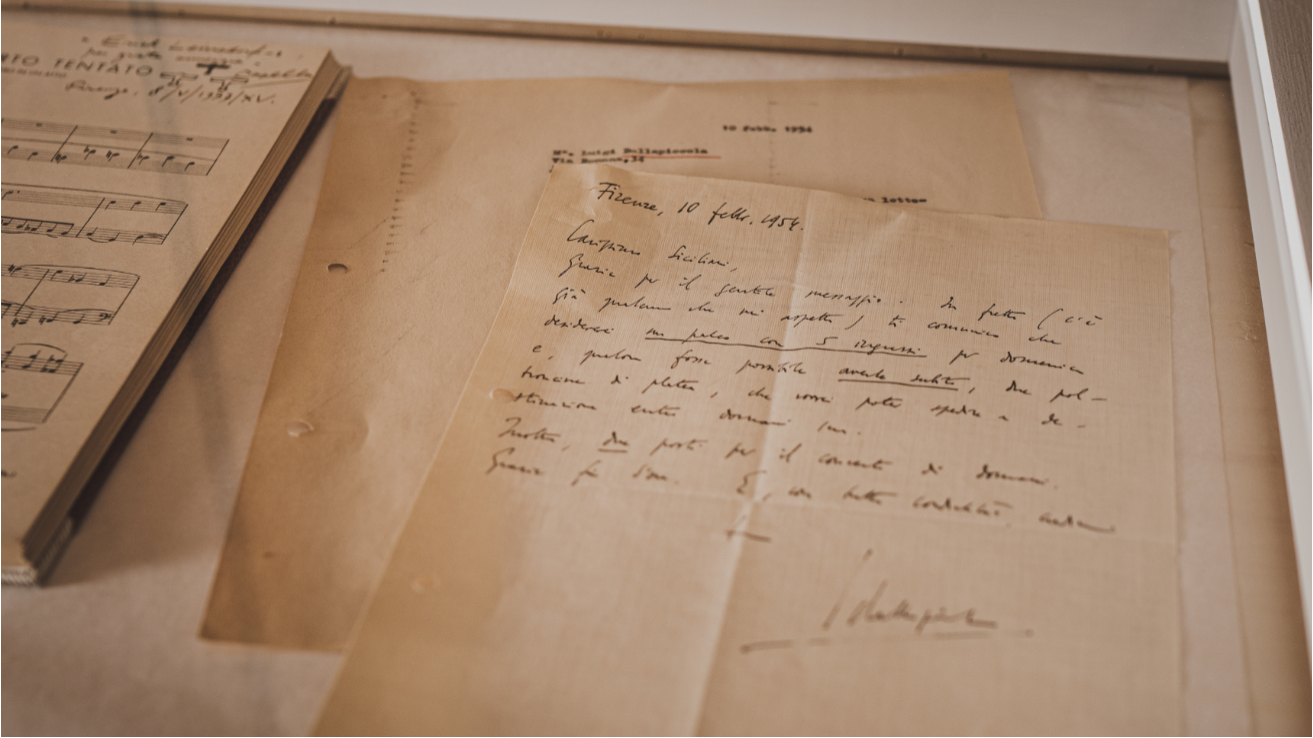 RTO TENTATO
Firenze, 8/V/1938/XV.
10 febb. 1954
Mº. Luigi Dallapiccola
Via Romana, 34
lettera
Firenze, 10 febbr. 1954.
Carissimo Siciliani,
Grazie per il gentile messaggio. In fretta (c'è
già qualcuno che mi aspetta) ti comunico che
desidererei un palco con 5 ingressi per domenica
e, qualora fosse possibile averle subito, due pol-
troncine di platea, che vorrei poter spedire a de-
stinazione entro domani
Inoltre, due posti per il concerto di domani.
Grazie fin d'ora. E, con tutta cordialità, credimi
LDallapiccola